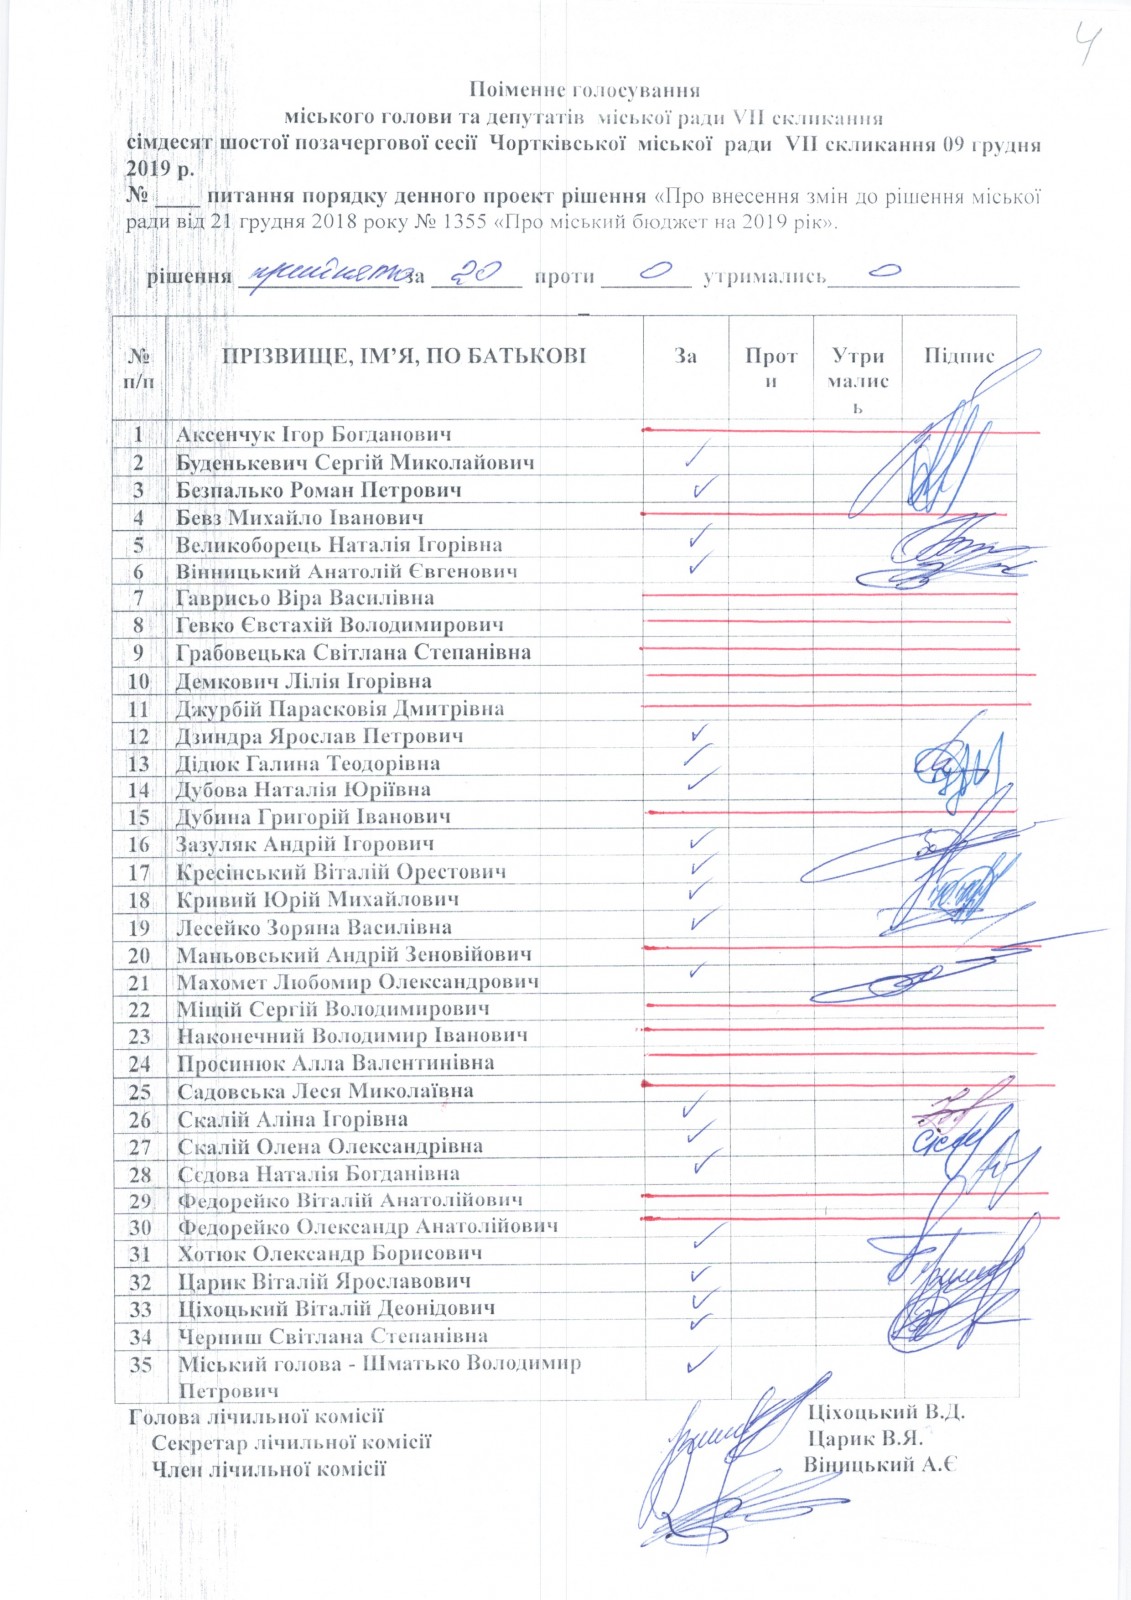 4
Поіменне голосування
міського голови та депутатів міської ради VII скликання
сімдесят шостої позачергової сесії Чортківської міської ради VII скликання 09 грудня
2019 р.
№ ____ питання порядку денного проект рішення «Про внесення змін до рішення міської
ради від 21 грудня 2018 року № 1355 «Про міський бюджет на 2019 рік».
рішення прийнято за 20 проти 0 утримались 0
№ п/п ПРІЗВИЩЕ, ІМ’Я, ПО БАТЬКОВІ За Проти Утрималисі Підпис
1 Аксенчук Ігор Богданович
2 Буденькевич Сергій Миколайович ✓
3 Безпалько Роман Петрович ✓
4 Бевз Михайло Іванович
5 Великоборець Наталія Ігорівна ✓
6 Вінницький Анатолій Євгенович ✓
7 Гаврисьо Віра Василівна
8 Гевко Євстахій Володимирович
9 Грабовецька Світлана Степанівна
10 Демкович Лілія Ігорівна
11 Джурбій Парасковія Дмитрівна
12 Дзиндра Ярослав Петрович ✓
13 Дідюк Галина Теодорівна ✓
14 Дубова Наталія Юріївна ✓
15 Дубина Григорій Іванович
16 Зазуляк Андрій Ігорович ✓
17 Кресінський Віталій Орестович ✓
18 Кривий Юрій Михайлович ✓
19 Лесейко Зоряна Василівна ✓
20 Маньовський Андрій Зеновійович
21 Махомет Любомир Олександрович ✓
22 Міщій Сергій Володимирович
23 Наконечний Володимир Іванович
24 Просинюк Алла Валентинівна
25 Садовська Леся Миколаївна
26 Скалій Аліна Ігорівна ✓
27 Скалій Олена Олександрівна ✓
28 Сєдова Наталія Богданівна ✓
29 Федорейко Віталій Анатолійович
30 Федорейко Олександр Анатолійович
31 Хотюк Олександр Борисович ✓
32 Царик Віталій Ярославович ✓
33 Ціхоцький Віталій Деонідович ✓
34 Черниш Світлана Степанівна ✓
35 Міський голова - Шматько Володимир ✓
Петрович
Голова лічильної комісії Ціхоцький В.Д.
Секретар лічильної комісії Царик В.Я.
Член лічильної комісії Віницький А.Є